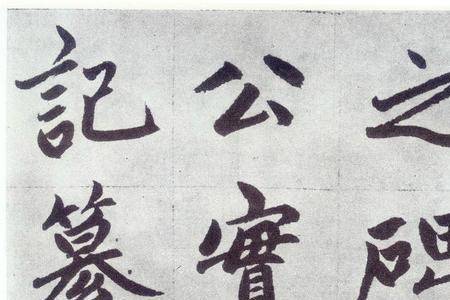 之
公實
記纂